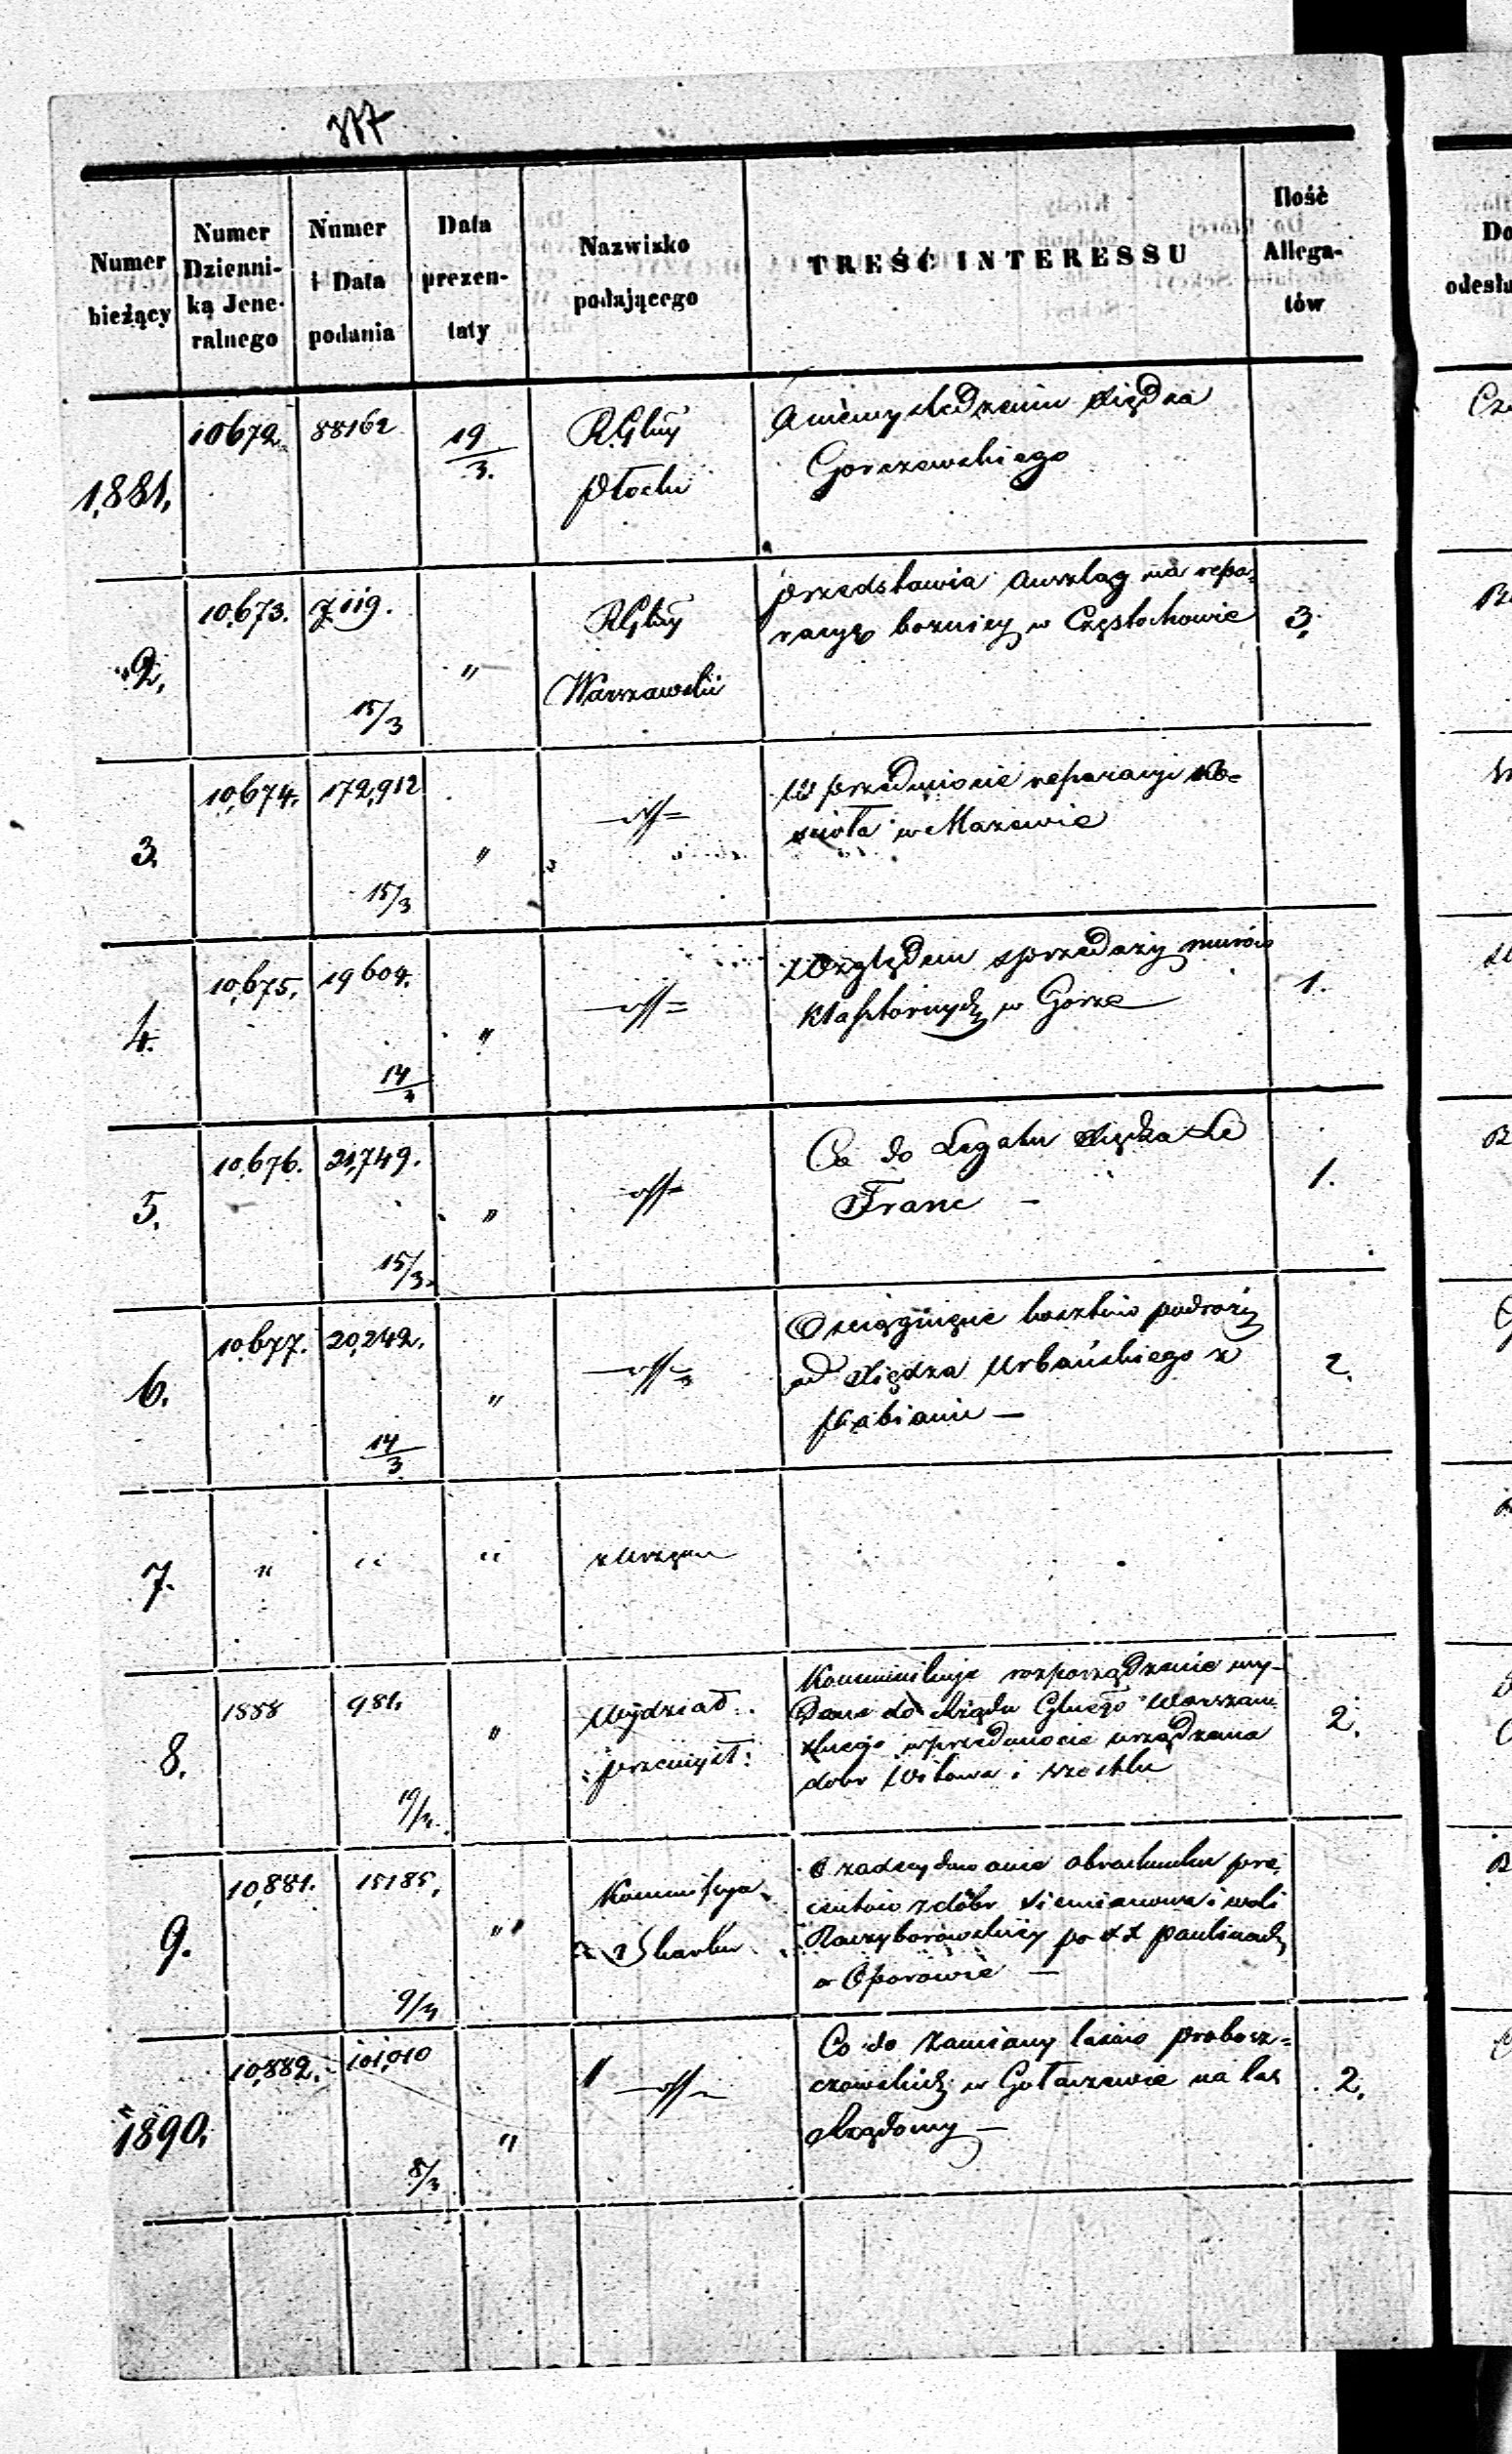 377
Numer bieżący
Numer Dzienni-ka Jene-ralnego
Numer i Data podania
Data prezen-taty
Nazwisko podającego
TREŚĆ INTERESSU
Ilość Allega-tów
1,881.
10672.
88162
19/3.
RGlny
Płocki
Księdza
Gorczewskiego
2.
10,673.
7119.
15/3
"
RGlny
Warszawski
przedstawia Anszlag na repa-
racyę bożnicy w Częstochowie
3.
3.
10,674.
172,912
15/3
"
W przedmiocie reparacyi Ko-
ścioła w Mazewie
4.
10,675.
19604.
14/3
"
Względem sprzedaży murów
Klasztornych w Gorze
1.
5.
10,676.
21,749.
15/3.
"
Co do Legatu Księdza Le
Franc —
1.
6.
10,677.
20,242.
14/3
"
O ściągnięcie kosztów podroży
od Księdza Urbańskiego z
Pabianic —
2.
7.
"
"
"
z Urzędu
8.
1558
981.
"
Wydział
przemysł:
Kommunikuje rozporządzenie wy-
dane do Rządu Glnego Warszaw-
skiego w przedmiocie urządzenia
dobr Witowa i
2.
9.
10,881.
15185.
"
Kommissya
Skarbu
O zadecydowanie obrachunku pro-
centów z dóbr Siemianowa i woli
Raczyborowskiej po XX Paulinach
w Oporowie —
1890.
10,882.
101,010
8/3
"
Co do Zamiany lasów probosz-
czowskich w Gołaszewie na las
Rządowy —
2.
Do
odesła